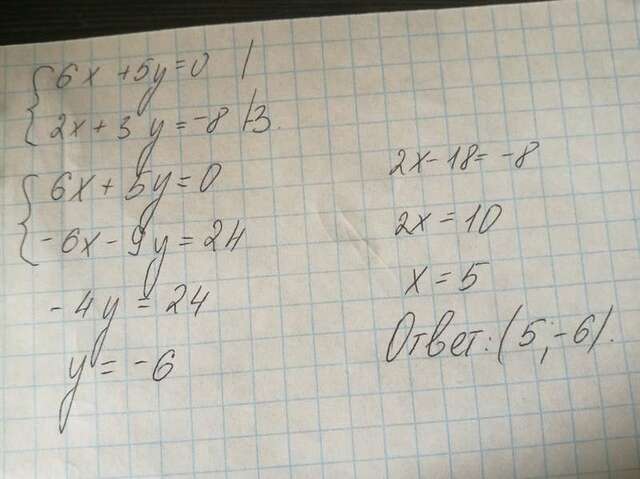 6x + 5y = 0 |
2x + 3y = -8 |-3.
6x + 5y = 0
-6x - 9y = 24
-4y = 24
y = -6
2x - 18 = -8
2x = 10
x = 5
Ответ: (5; -6).